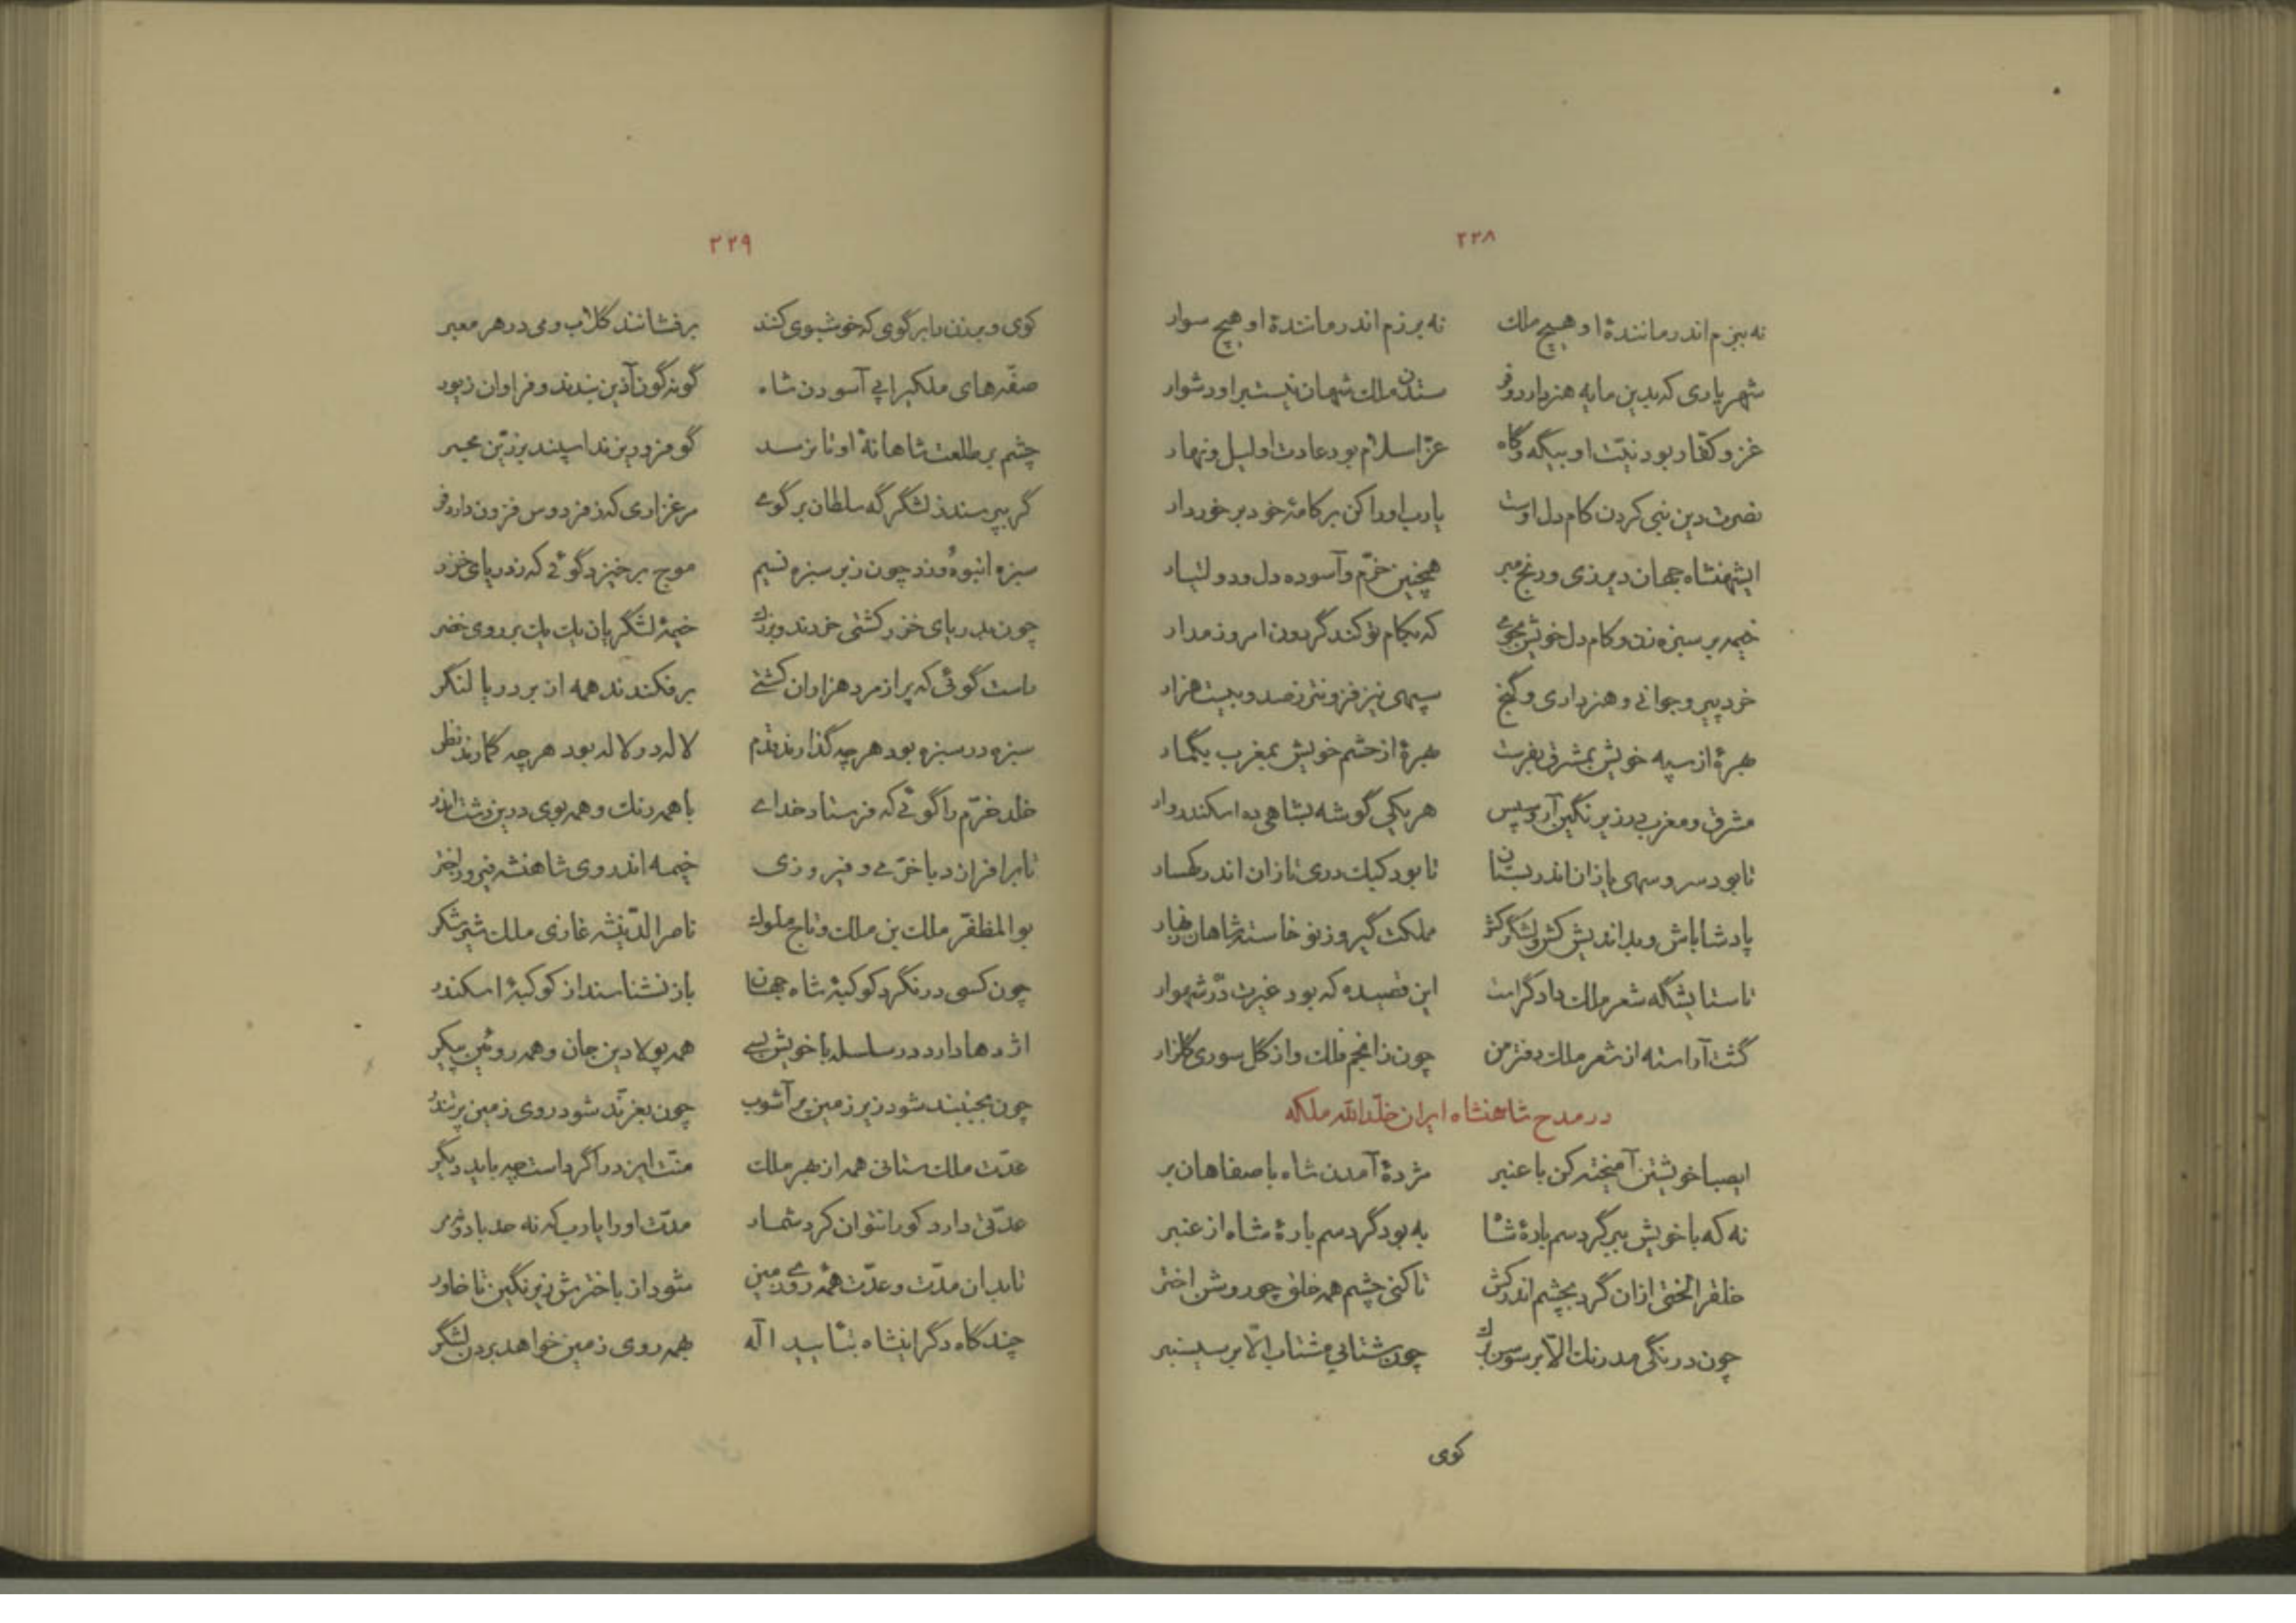 ۲۲۸
نه ببزم اندر مانندهٔ او هیچ ملک نه برزم اندر مانندهٔ او هیچ سوار
شهریاری که بدین مایه هنر دارد و فر ستدن ملک شهان نیست بر او دشوار
غزو کفار بود نیّت او بیگه و گاه عزّ اسلام بود عادت او لیل و نهار
نصرت دین نبی کردن کام دل اوست یارب او را کن بر کامهٔ خود برخوردار
ایشهنشاه جهان دیر زی و رنج مبر همچنین خرّم و آسوده دل و دولتیار
خیمه بر سبزه زن و کام دل خویش بجوی که بکام تو کند گردون امروز مدار
خرد پیر و جوانی و هنر داری و گنج سپهی نیز فزونتر ز صد و بیست هزار
بهرهٔ از سپه خویش بمشرق بفرست بهرهٔ از حشم خویش بمغرب بگمار
مشرق و مغرب در زیر نگین آر و سپس هر یکی گوشه بشاهی ده اسکندروار
تا بود سرو سهی یازان اندر بستان تا بود کبک دری تازان اندر کهسار
پادشا باش و بداندیش کش و لشگر کش مملکت گیر و ز نو خاسته شاهان
تا ستایشگه شعر ملک دادگر است این قصیده که بود غیرت درّ شهوار
گشت آراسته از شعر ملک دفتر من چون ز انجم فلک و از گل سوری گلزار
در مدح شاهنشاه ایران خلّد الله ملکه
ایصبا خویشتن آمیخته کن با عنبر مژدهٔ آمدن شاه باصفاهان بر
نه که با خویش ببر گرد سم بارهٔ شاه به بود گرد سم بارهٔ شاه از عنبر
خلق را لختی ازان گرد بچشم اندر کش تا کنی چشم همه خلق چو روشن اختر
چون درنگی مدرنگ الّا بر سوسن چون شتابی مشتاب الّا بر سیسنبر
کوی
۲۲۹
کوی و برزن را بر گوی که خوشبوی کنند برفشانند گلاب و می در هر معبر
صفّه‌های ملکی را پی آسودن شاه گونه گون آذین بندند و فراوان زیور
چشم بر طلعت شاهانهٔ او تا نرسد گو فرو ریزند اسپند بزرّین مجمر
گر بپرسند ز لشگرگه سلطان بر گوی مرغزاری که ز فردوس فزون دارد فر
سبزه انبوه و زد چون ز بر سبزه نسیم موج برخیزد گوئی که ز دریای خزر
چون بدریای خزر کشتی خرد و بزرگ خیمهٔ لشگریان یک یک بر روی خضر
راست گوئی که پر از مرد هزاران کشتی برفکندند همه از بر دریا لنگر
سبزه در سبزه بود هر چه گذارند قدم لاله در لاله بود هر چه گمارند نظر
خلد خرّم را گوئی که فرستاد خدای با همه رنگ و همه بوی درین دشت اندر
تا برافرازد با خرّمی و فیروزی خیمه اندر وی شاهنشه فیروز اختر
بوالمظفّر ملک بن ملک و تاج ملوک ناصرالدّینشه غازی ملک شیر شکر
چون کسی درنگرد کوکبهٔ شاه جهان باز نشناسند از کوکبهٔ اسکندر
اژدها دارد در سلسله با خویش بسی همه پولادین جان و همه روئین پیکر
چون بجنبند شود زیر زمین پر آشوب چون بغرّند شود روی زمین پر تندر
عدّت ملک ستانی همه از بهر ملک منّت ایزد را گرد است چه باید دیگر
عدّتی دارد کورا نتوان کرد شمار مدّت او را یارب که نه حد باد و نه مر
تا بدان مدّت و عدّت همه روی زمین شود از باخترش زیر نگین تا خاور
چند گاه دگر اینشاه بتأیید اله بهمه روی زمین خواهد بردن لشگر